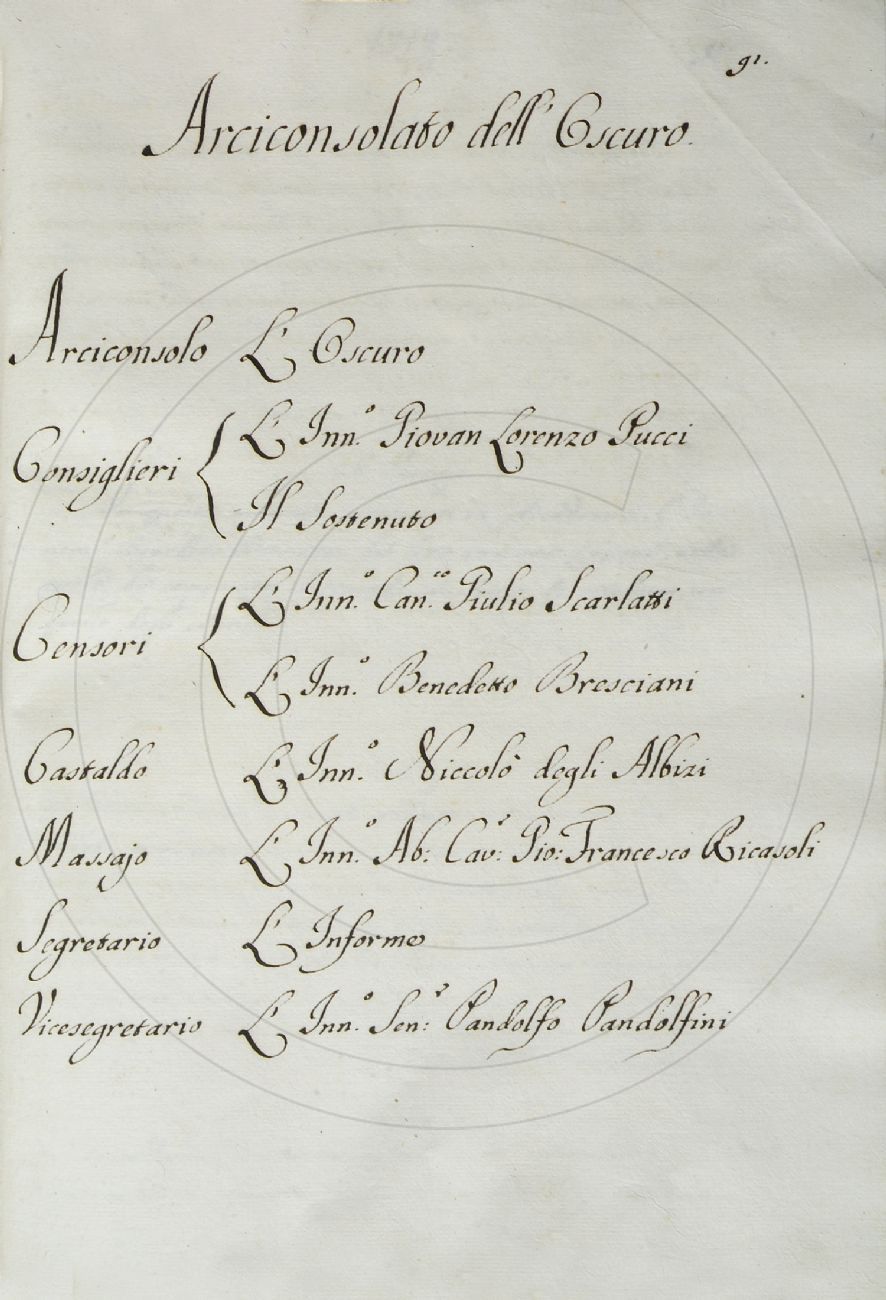 91.
Arciconsolato dell'Oscuro.
Arciconsolo L'Oscuro
Consiglieri L'Inn.º Piovan Lorenzo Pucci
Il Sostenuto
Censori L'Inn.º Can.co Giulio Scarlatti
L'Inn.º Benedetto Bresciani
Castaldo L'Inn.º Niccolò degli Albizi
Massajo L'Inn.º Ab: Cav:e Gio: Francesco Ricasoli
Segretario L'Informe
Vicesegretario L'Inn.º Sen:e Pandolfo Pandolfini